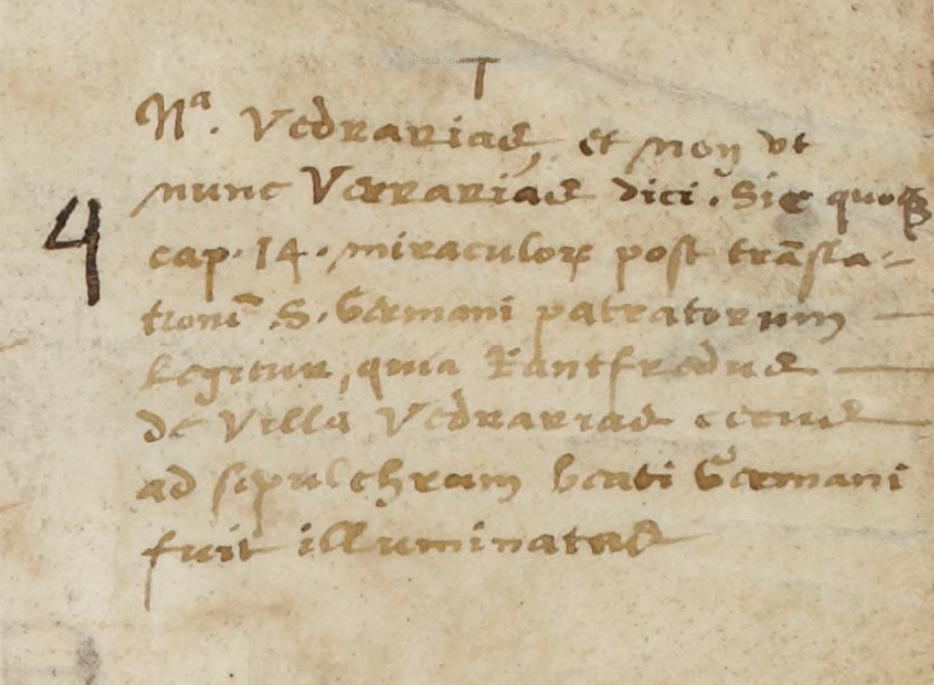 Nᵃ. Vedrarias, et non vt
nunc Verrarias dici. Sic quoqꝫ
cap. 14. miraculorꝝ post trāsla-
tioni͂ .S. Germani patratorum
Legitur, quia Rantfradus
de Villa Vedrarias cecus
ad sepulchrum beati Germani
fuit illuminatus
4